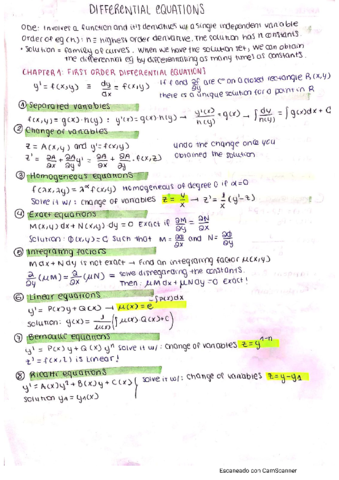 DIFFERENTIAL EQUATIONS
ODE: involves a function and it's derivatives w/ a single independent variable
Order of eq (n): n = highest order derivative. The solution has n constants.
· Solution = family of curves. When we have the solution set, we can obtain
the differential eq by differentiating as many times as constants.
CHAPTER 1: FIRST ORDER DIFFERENTIAL EQUATIONS
y' = f(x,y) ≡ dy/dx = f(x,y) if f and ∂f/∂y are C⁰ on a closed rectangle R, (x,y)
there is a unique solution for a point in R
① Separated variables
f(x,y) = g(x)·h(y) : y'(x) = g(x)·h(y) → y'(x)/h(y) = g(x) → ∫ dy/h(y) = ∫ g(x)dx + C
② Change of variables
z = A(x,y) and y' = f(x,y) undo the change once you
z' = ∂A/∂x + ∂A/∂y y' = ∂A/∂x + ∂A/∂y · f(x,z) obtained the solution
③ Homogeneous equations
f(λx, λy) = λᵅ f(x,y) Homogeneous of degree 0 if α=0
Solve it w/: change of variables z = y/x → z' = 1/x (y'-z)
④ Exact equations
M(x,y)·dx + N(x,y)·dy = 0 Exact if ∂M/∂y = ∂N/∂x
Solution: Φ(x,y) = C such that M = ∂Φ/∂x and N = ∂Φ/∂y
⑤ Integrating factors
Mdx + Ndy is not exact → find an integrating factor μ(x,y)
∂/∂y (μM) = ∂/∂x (μN) = solve disregarding the constants.
Then: μMdx + μNdy = 0 exact!
⑥ Linear equations
y' = P(x)y + Q(x) → μ(x) = e^-∫P(x)dx
solution: y(x) = 1/μ(x) [∫ μ(x) Q(x) + C]
⑦ Bernouilli equations
y' = P(x)y + Q(x)yⁿ solve it w/: change of variables z = y^1-n
z' = f(x,z) is linear!
⑧ Ricatti equations
y' = A(x)y² + B(x)y + C(x) solve it w/: change of variables z = y-y₁
solution y₁ = y₁(x)
Escaneado con CamScanner